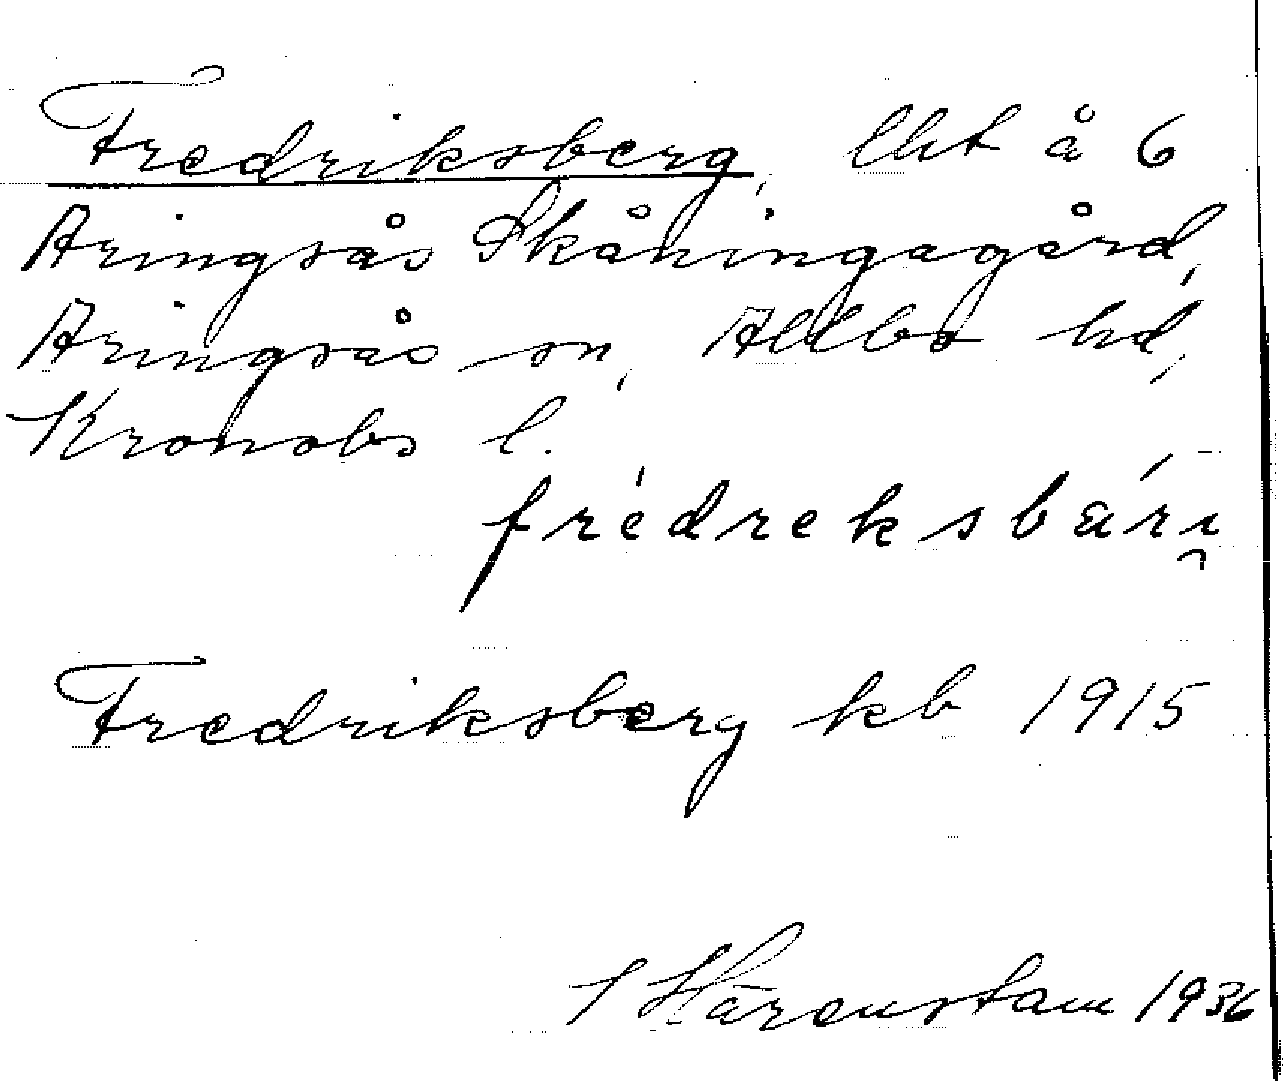 Fredriksberg, lht å 6
Aringsås Skåningagård,
Aringsås sn, Allbo hd,
Kronobs l.
fre̍dreksbär̍ı̯
Fredriksberg kb 1915
Härenstam 1936